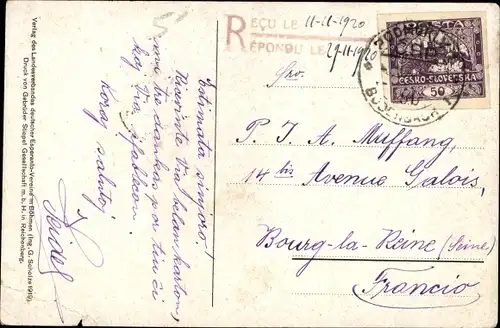 Verlag des Landesverbandes deutscher Esperanto-Vereine in Böhmen (Ing. G. Scholze 1919).
Druck von Gebrüder Stiepel Gesellschaft m. b. H. in Reichenberg.
Estimata sinjoro!
Ricevinte Vian karton,
mi tre dankas por tiu ci
kaj Via
Koraj salutoj
REÇU LE 11-11-1920
RÉPONDU LE 29-11-1920
POŠTA
ČESKO-SLOVENSKÁ
50
PODMOKLY
BODENBACH
Sro.
P. I. A. Muffang,
14 bis Avenue Galois,
Bourg-la-Reine (Seine)
Francio